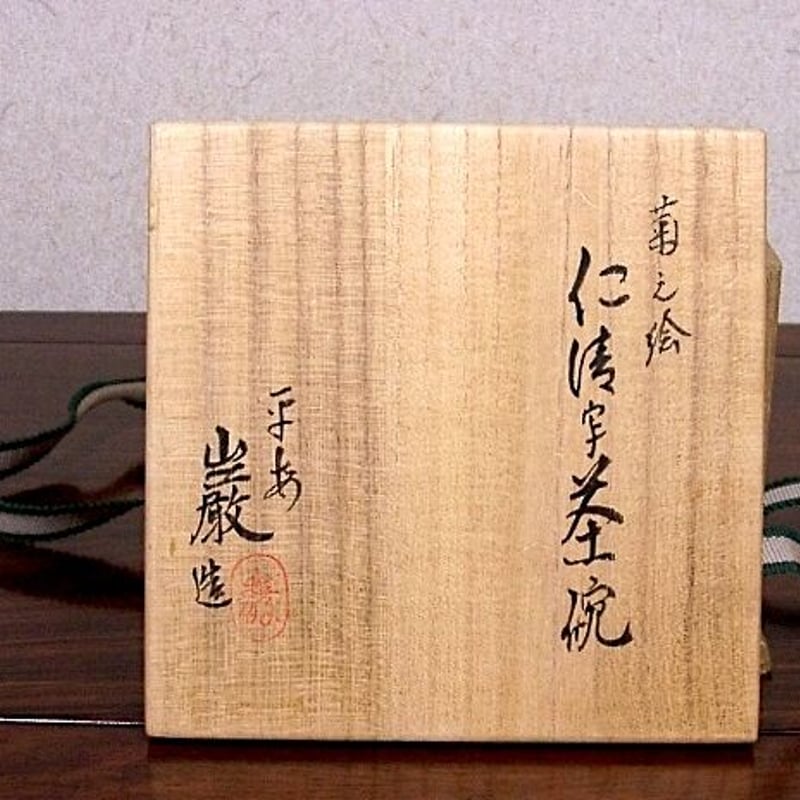 菊之絵
仁清写茶碗
平安
巖造